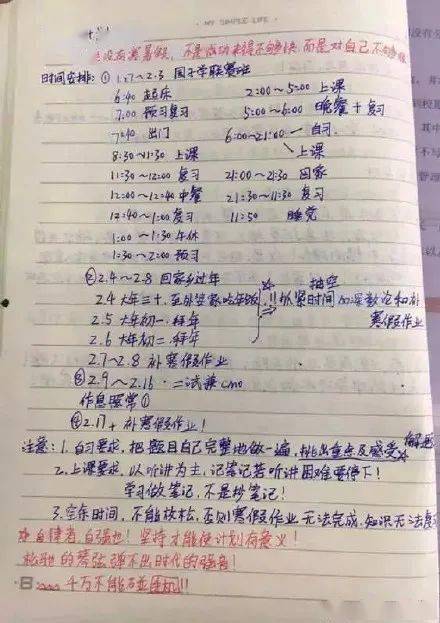 · MY SIMPLE LIFE ·
没有寒暑假，不是成功来得不够快，而是对自己不够狠
时间安排：① 1.27~2.3 国子学联赛班
6:40 起床 2:00~5:00 上课
7:00 预习复习 5:00~6:00 晚餐+复习
7:40 出门 6:00~21:00 一 自习
8:30~11:30 上课 上课
11:30~12:00 复习 21:00~21:30 回家
12:00~12:40 中餐 21:30~11:30 复习
12:40~1:00 复习 11:50 睡觉
1:00~1:30 午休
1:30~2:00 预习
② 2.4~2.8 回家乡过年
2.4 大年三十，至外公家吃年饭 !! 抽空
2.5 大年初一，拜年 抓紧时间 数论和补
2.6 大年初二，拜年 寒假作业
2.7~2.8 补寒假作业
③ 2.9~2.16 · 二试兼CMO
作息照常①
④ 2.17+ 补寒假作业！
注意：1. 自习要求，把题目自己完整地做一遍，挑出重点及感受
2. 上课要求，以听讲为主，记笔记若听讲困难要停下！
学习做笔记，不是抄笔记！
3. 空余时间，不能放松，否则寒假作业无法完成，知识无法复
自律者，自强也！坚持才能使计划有意义！
松弛的琴弦弹不出时代的强音！
千万不能碰手机!!